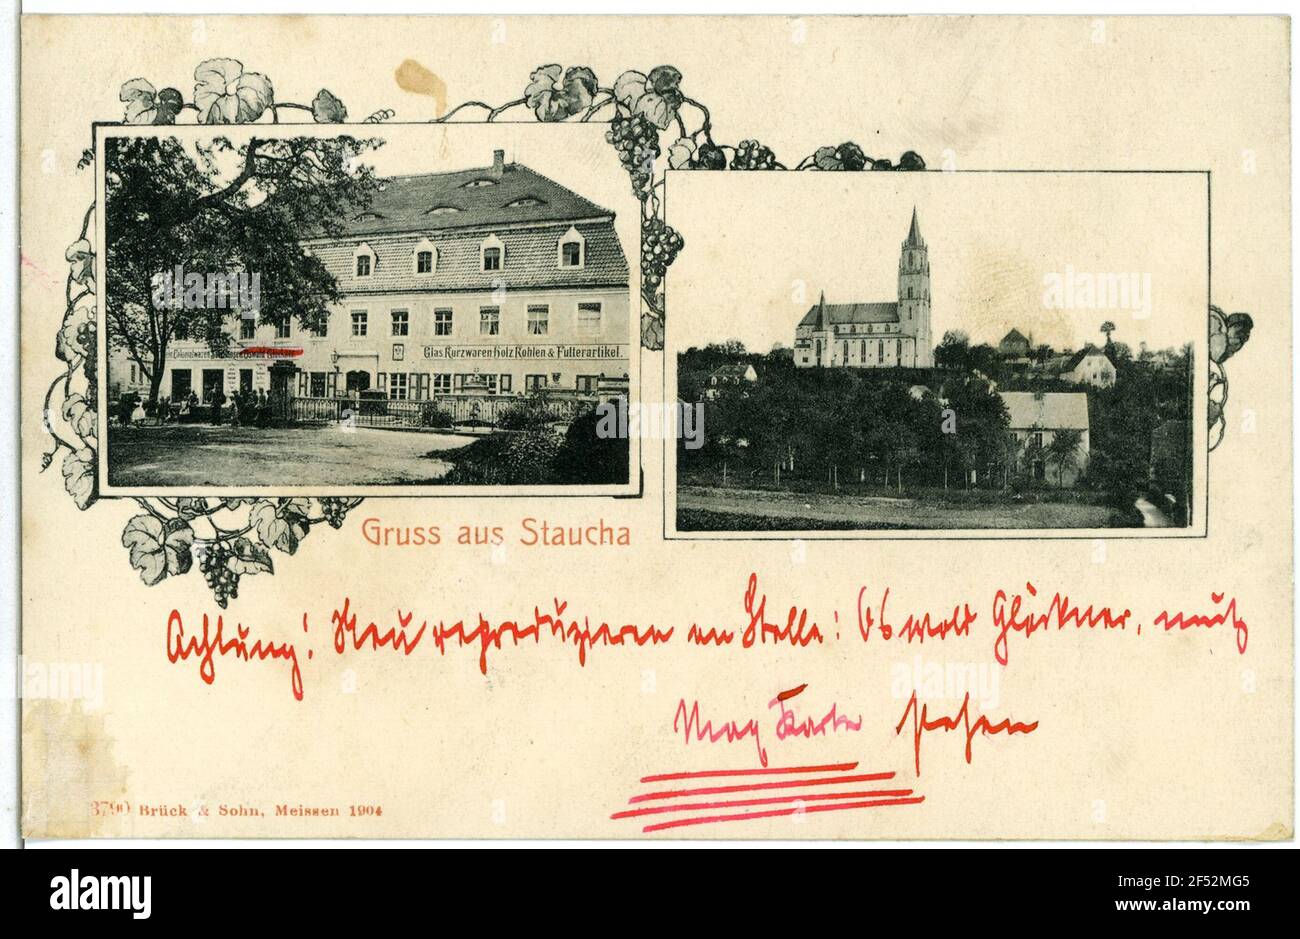 Glas, Kurzwaren Holz, Kohlen & Futterartikel.
Gruss aus Staucha
Achtung! Neu reproduzieren an Stelle: Oswald Glöckner, muß
Max Karte stehen
3790 Brück & Sohn, Meissen 1904
alamy
alamy
Image ID: 2F52MG5
www.alamy.com